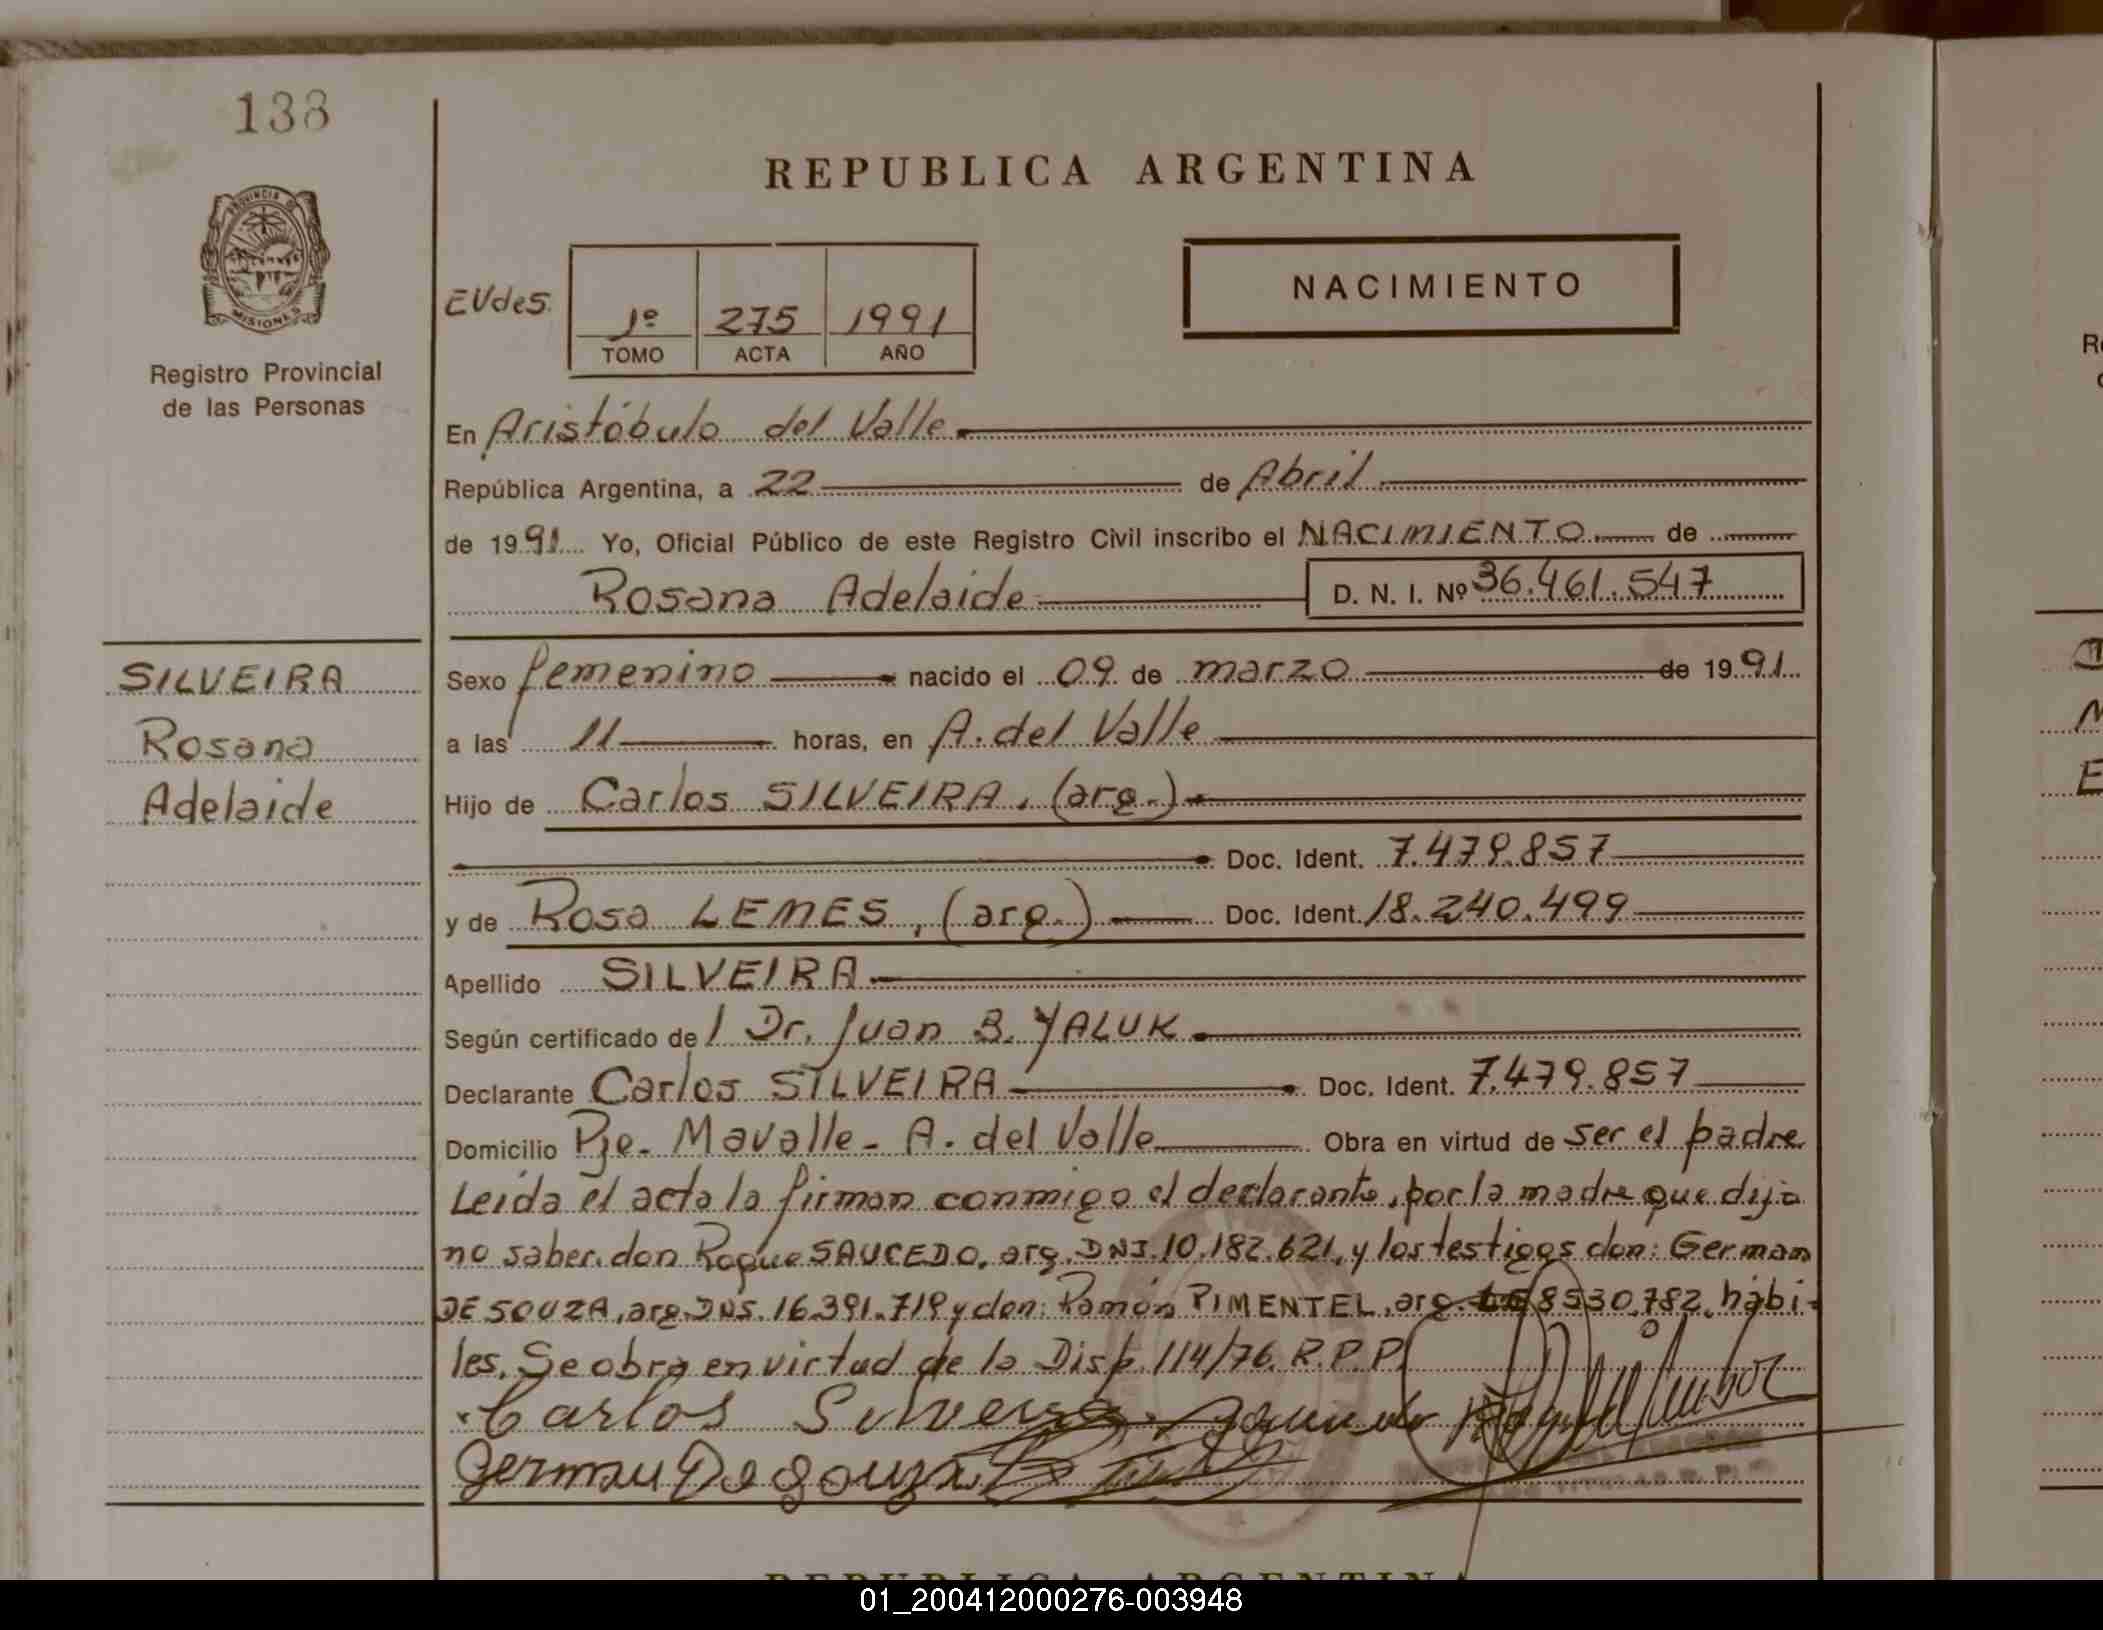 138
REPUBLICA ARGENTINA
PROVINCIA DE
MISIONES
Registro Provincial
de las Personas
EVdes.
1º 275 1991
TOMO ACTA AÑO
NACIMIENTO
En Aristóbulo del Valle
República Argentina, a 22 de Abril
de 1991 Yo, Oficial Público de este Registro Civil inscribo el NACIMIENTO de
Rosana Adelaide D. N. I. Nº 36.461.547
SILVEIRA
Rosana
Adelaide
Sexo femenino nacido el 09 de marzo de 1991
a las 11 horas, en A. del Valle
Hijo de Carlos SILVEIRA, (arg.)
Doc. Ident. 7.479.857
y de Rosa LEMES, (arg.) Doc. Ident. 18.240.499
Apellido SILVEIRA
Según certificado de l Dr. Juan B. YALUK
Declarante Carlos SILVEIRA Doc. Ident. 7.479.857
Domicilio Pje. Mavalle - A. del Valle Obra en virtud de ser el padre
Leída el acta la firman conmigo el declarante, por la madre que dijo
no saber, don Roque SAUCEDO, arg. DNI. 10.182.621, y los testigos don: German
DE SOUZA, arg. DNI. 16.391.719 y don: Ramón PIMENTEL, arg. LE 8530.782, hábi-
les. Se obra en virtud de la Disp. 114/76. R.P.P.
Carlos Silveira
German De Souza
REPUBLICA ARGENTINA
01_200412000276-003948